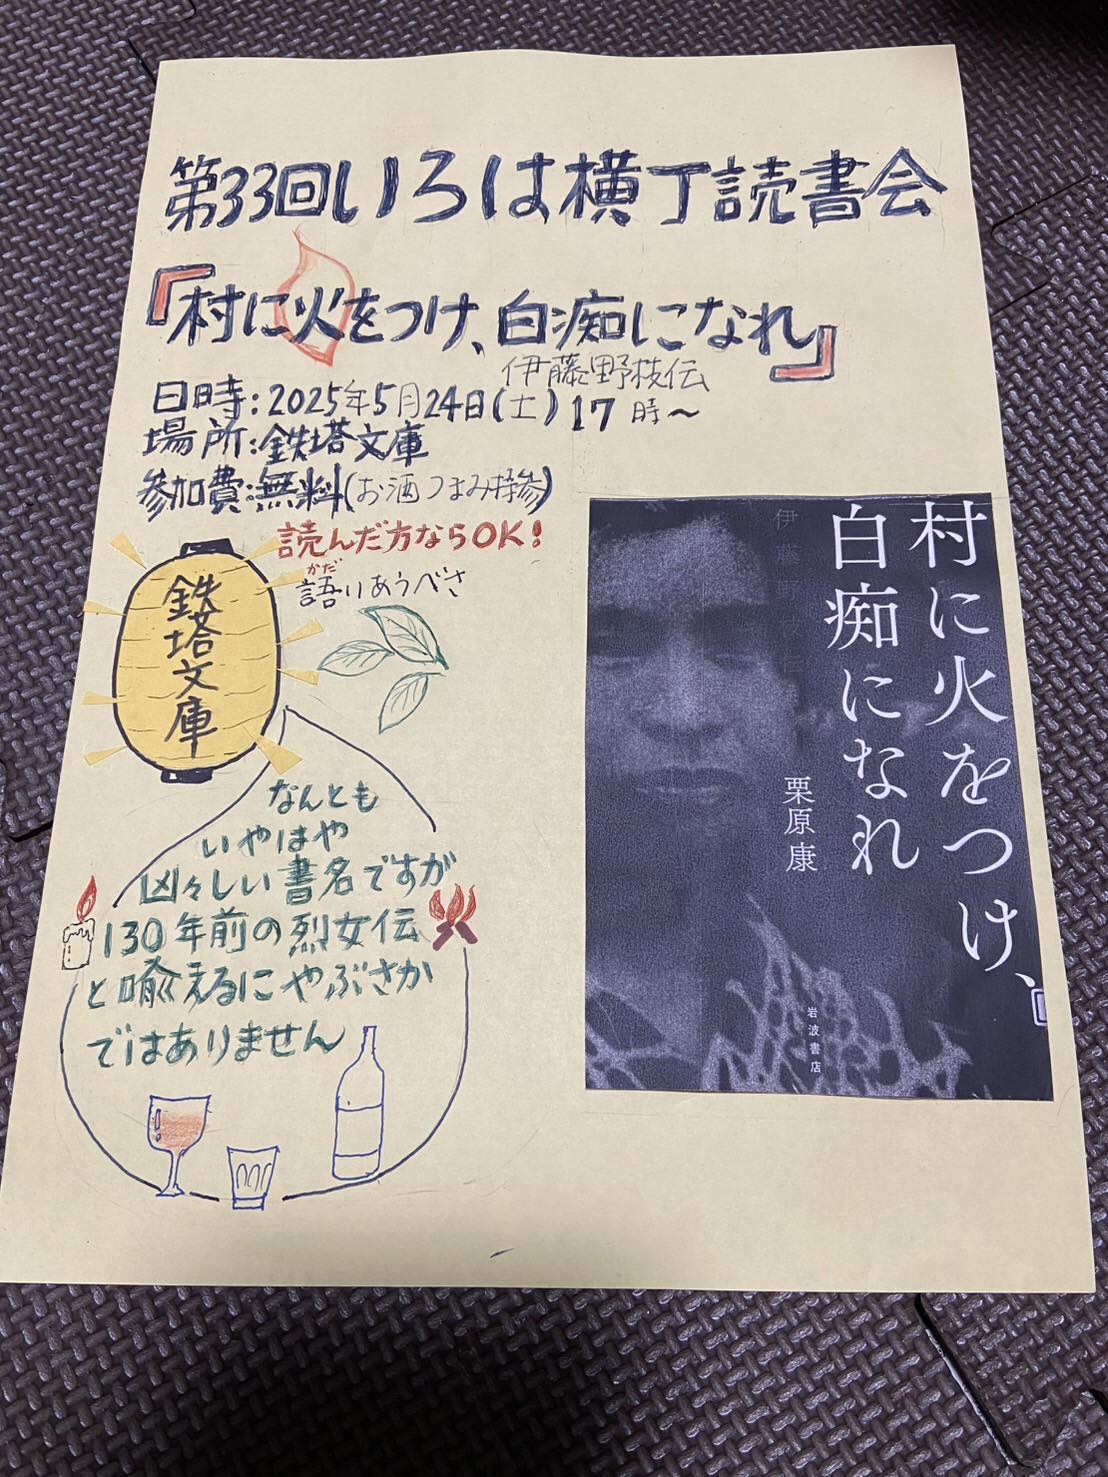 第33回いろは横丁読書会
『村に火をつけ、白痴になれ』
伊藤野枝伝
日時:2025年5月24日(土)17時~
場所:鉄塔文庫
参加費:無料(お酒つまみ持参)
読んだ方ならOK!
かだ
語りあうべさ
鉄塔文庫
なんとも
いやはや
凶々しい書名ですが
130年前の烈女伝
と喩えるにやぶさか
ではありません
村に火をつけ、
白痴になれ
伊藤野枝伝
栗原康
岩波書店